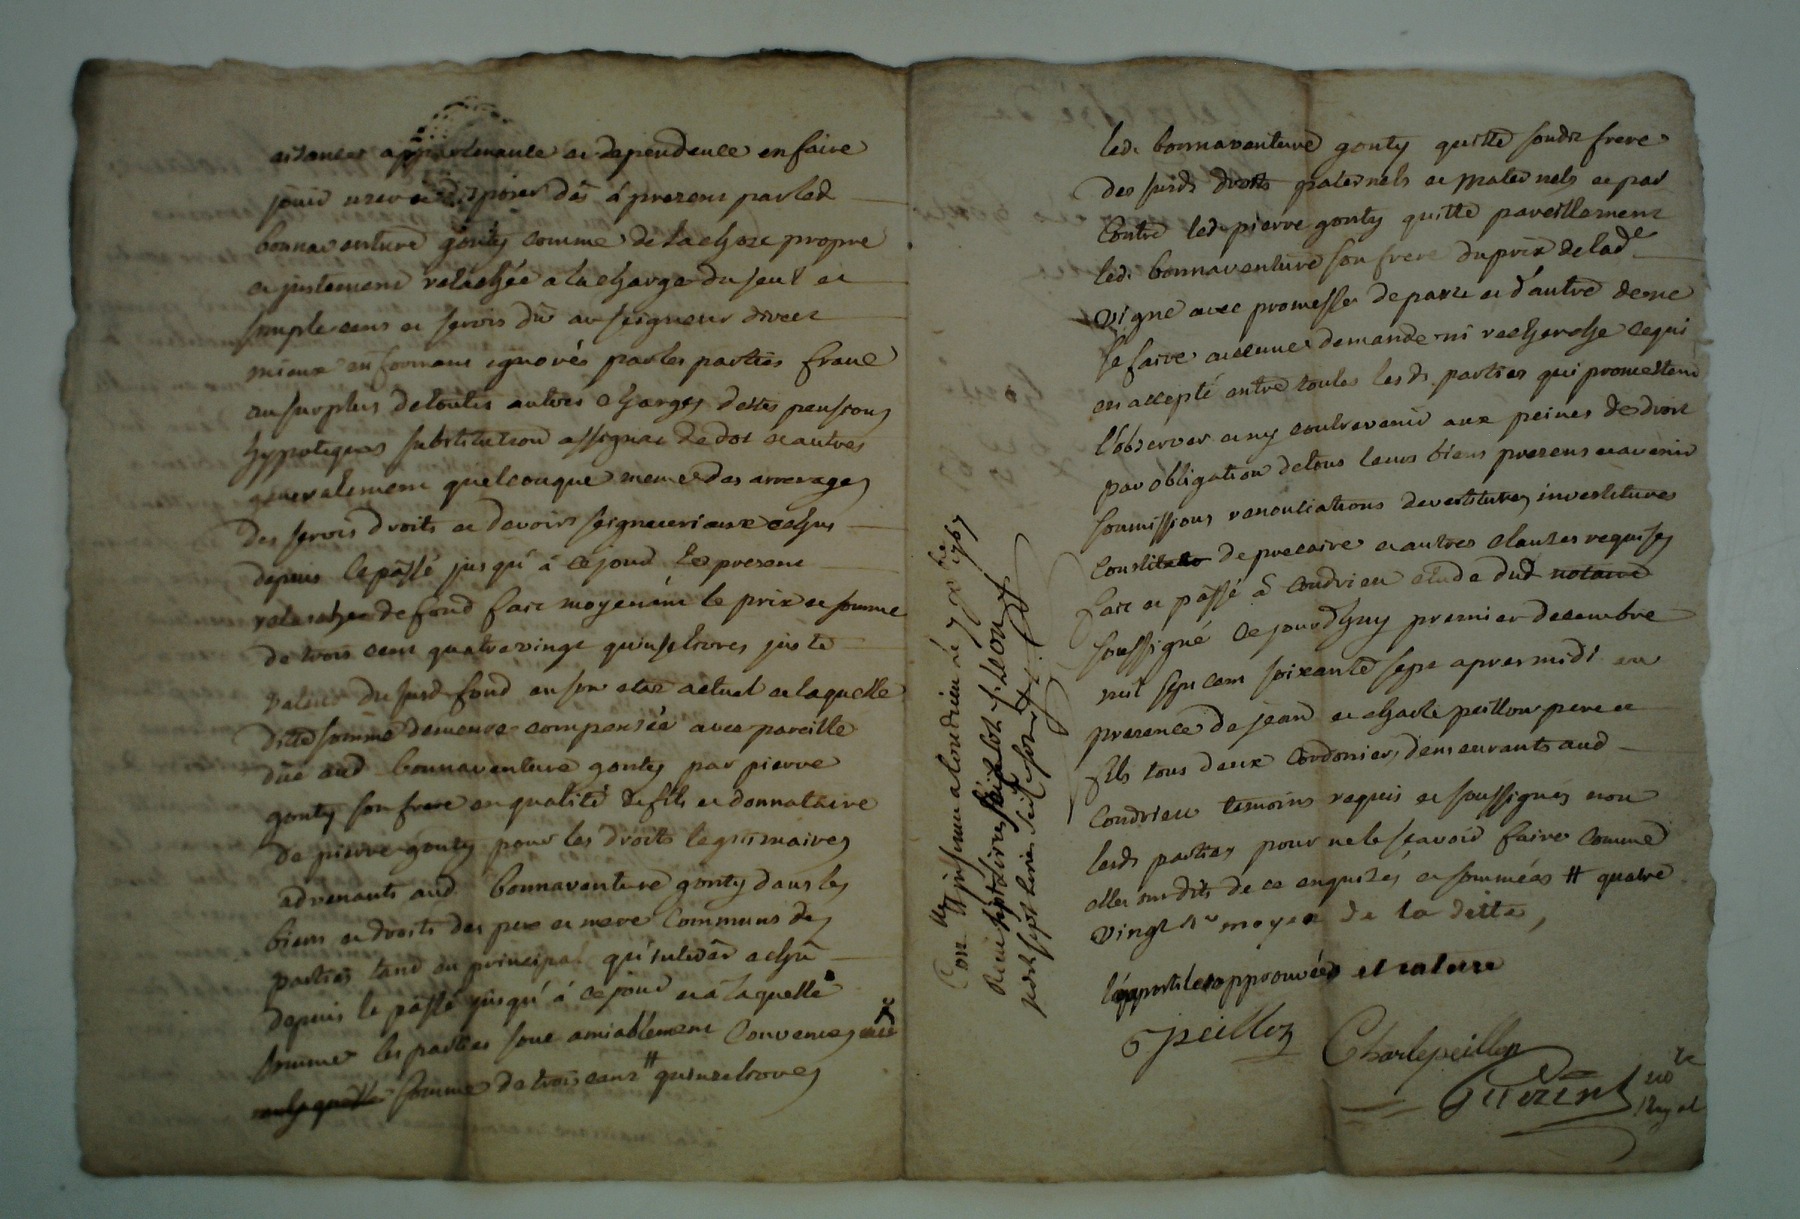 aisances appartenance et dependence en faire
jouir user et disposer dés á present par led
bonnaventure gonty comme de sa chose propre
et justement relachée a la charge du seul et
simple cens et servis dû au seigneur direct
mieux informant ignorés par les parties franc
au surplus de toutes autres charges dettes pensions
hypotiques substitution assignat de dot et autres
generalement quelconque meme des arrerages
des servis droits et devoirs seigneuriaux echus
depuis le passé jusqu'á ce jour Le present
relachee de fond fait moyenant le prix et somme
de trois cent quatre vingt quinse livres juste
valeur du susd fond en son etat actuel et laquelle
ditte somme demeure compensée avec pareille
düe aud bonnaventure gonty par pierre
gonty son frere en qualité de fils et donnataire
de pierre gonty pour les droits legitimaires
advenants aud bonnaventure gonty dans les
biens et droits des pere et mere communs des
parties tand en principal qu'interêt echu
depuis le passé jusqu'á ce jour et á laquelle
somme les parties sont amiablement convenues
somme de trois cent # quinze livres
Con.lle et insinué a Condrieu le 7 Xbre 1767
Recu
sept livres seit sols
led. bonnaventure gonty quitte sondt frere
des susds droits paternels et maternels et par
Contre led. pierre gonty quitte pareillement
led. bonnaventure son frere du prix de lade
vigne avec promesse de part et d'autre de ne
se faire aucune demande ni recherche ce qui
est accepté entre toutes lesds. parties qui promettent
l'observer et ny contrevenir aux peines de droit
par obligation de tous leurs biens presens et avenir
soumissions renontiations devestitures investitures
Constitut de precaire et autres clauses requises
fait et passé á Condrieu etude dud notaire
soussigné ce jourdhuy premier decembre
mil sept cent soixante sept apres midi en
presence de jean et charle peillon pere et
fils tous deux Cordoniers demeurants aud
Condrieu temoins requis et soussignés non
lesds parties pour ne le sçavoir faire comme
elles ont dits de ce enquises et sommées # quatre
vingt st moyen de la dette,
l'apostiles approuvées et rature
J peillon
Charlepeillon
Guerin
not.re
Royal